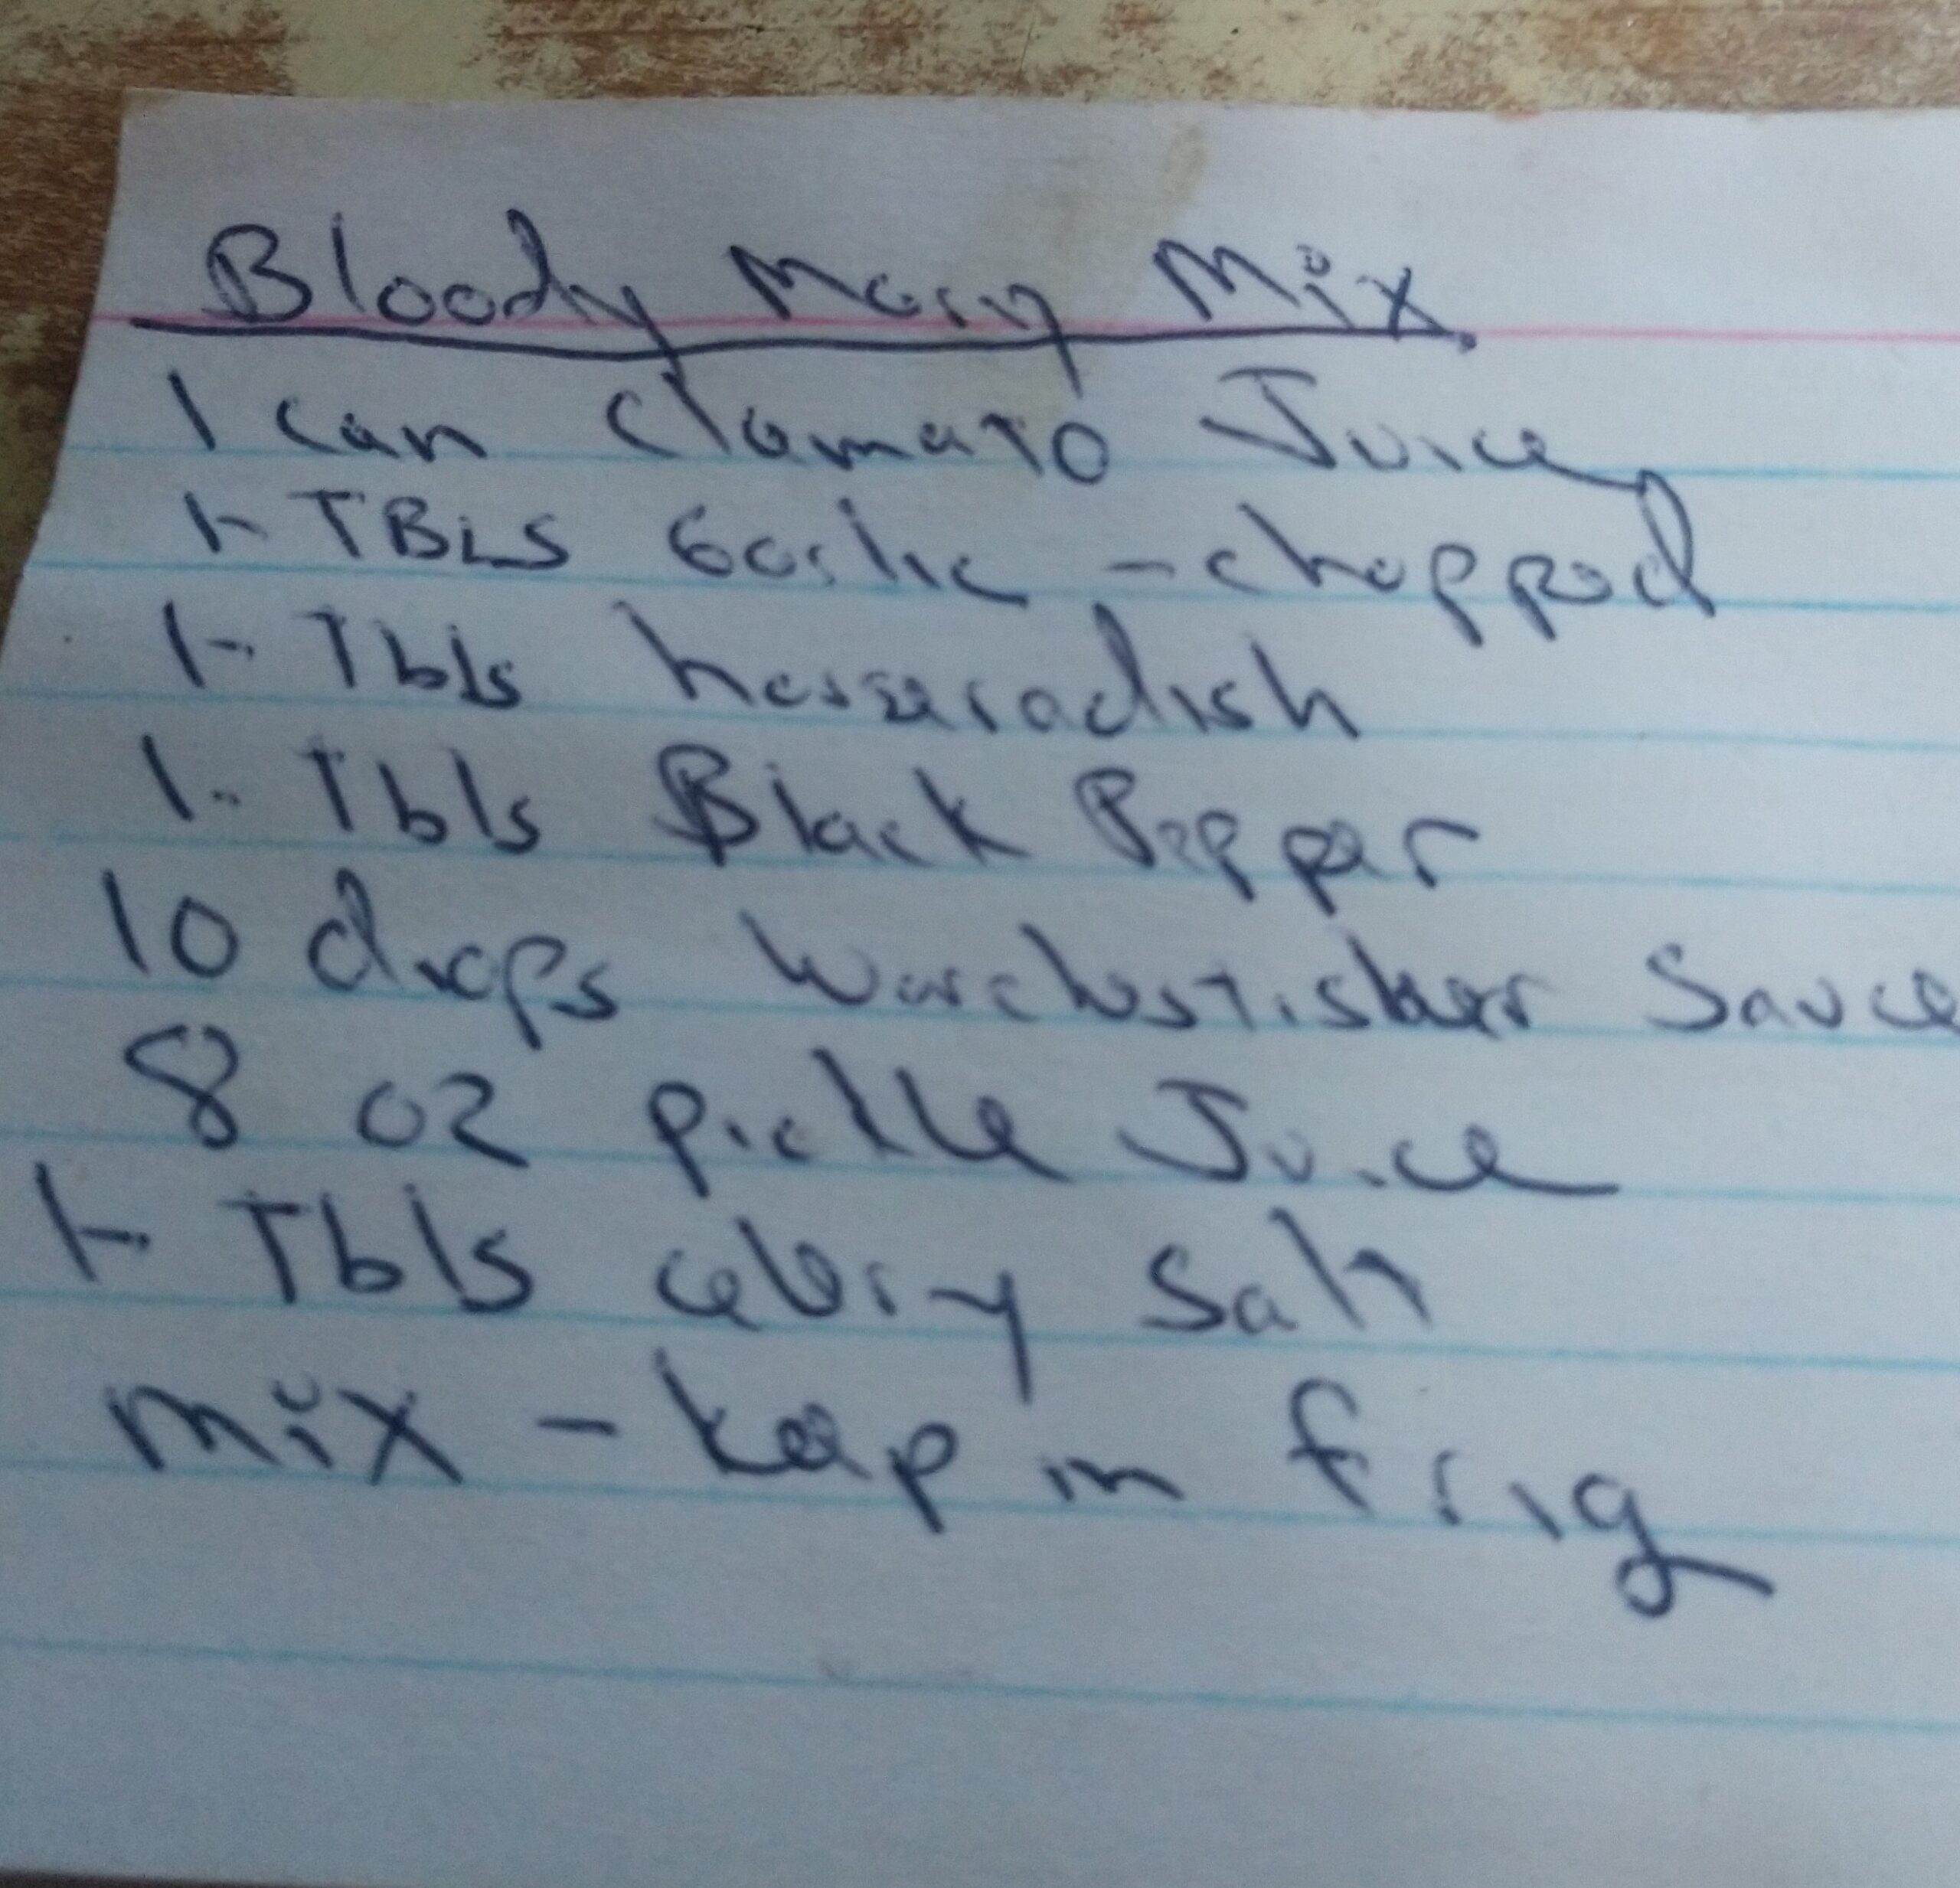 Bloody Mary Mix
1 can Clamato Juice
1- TBLS Garlic - chopped
1- Tbls horseradish
1- Tbls Black Pepper
10 drops Sauce
8 oz pickle Juice
1- Tbls celery Salt
mix - keep in frig